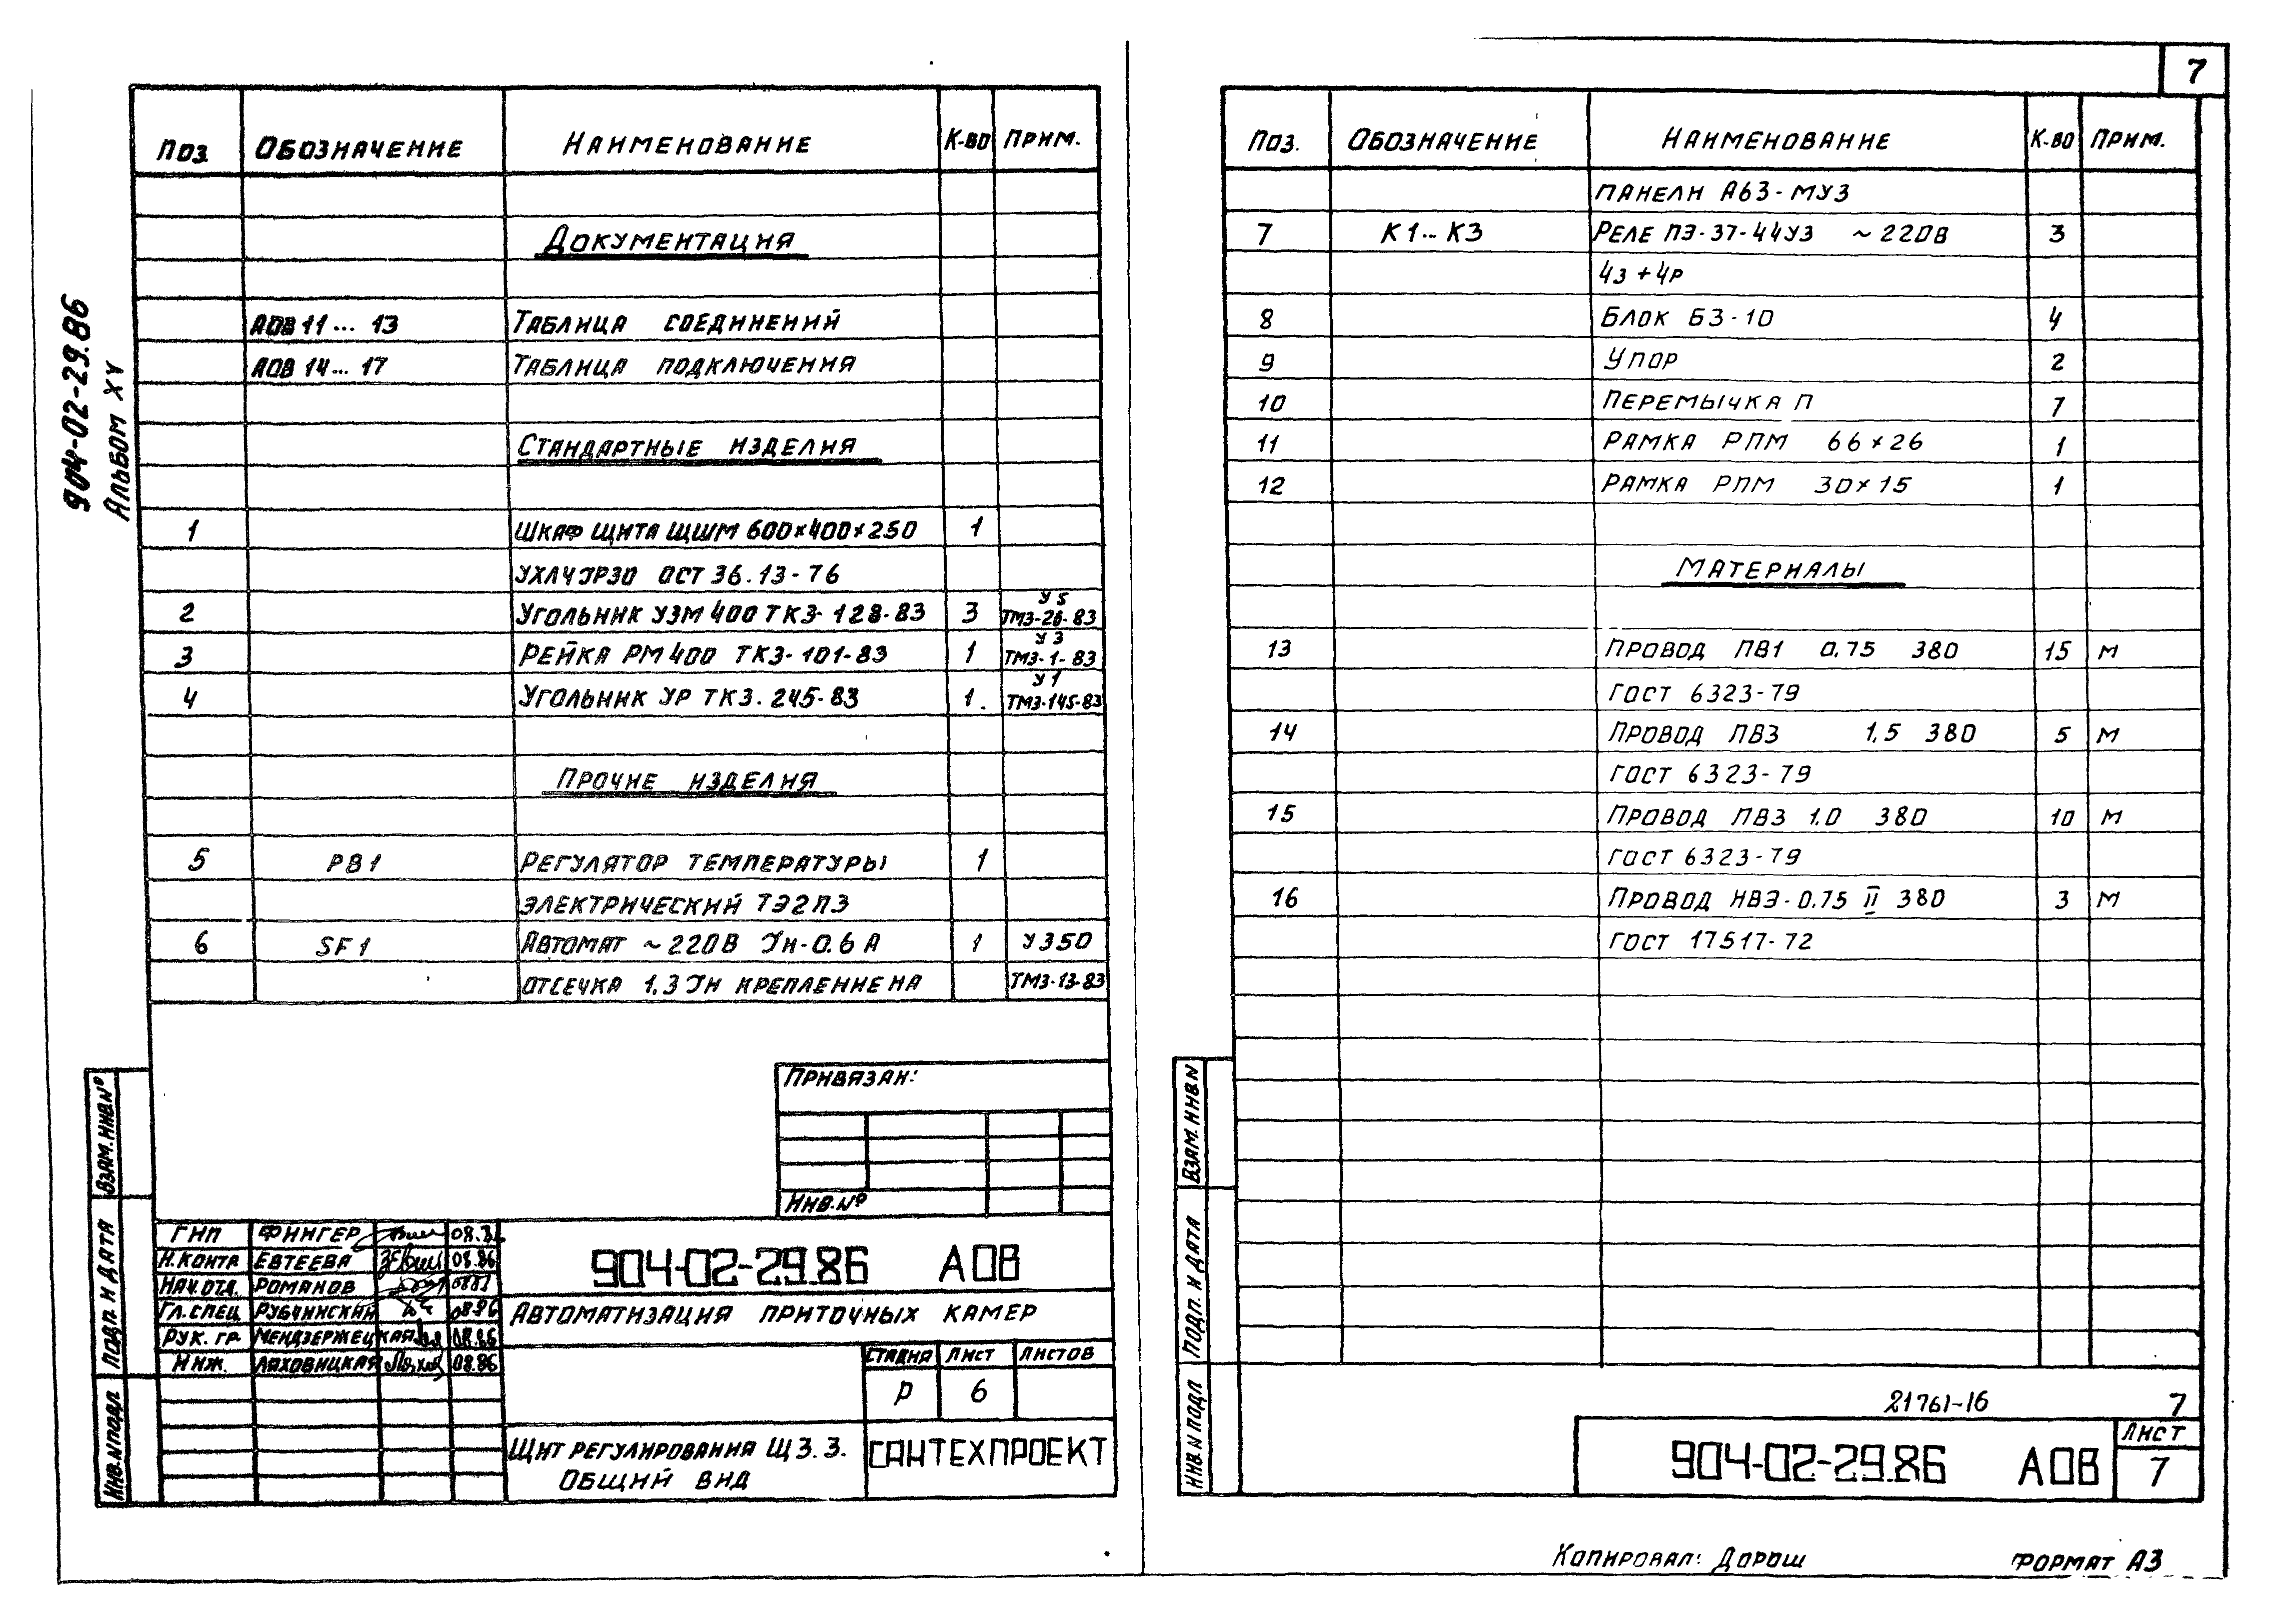 904-02-29.86
Альбом XV
Поз. Обозначение Наименование К-во Прим.
Документация
АОВ 11... 13 Таблица соединений
АОВ 14... 17 Таблица подключения
Стандартные изделия
1 Шкаф щита ЩШМ 600×400×250 1
УХЛ4 IP30 ОСТ 36.13-76
2 Угольник УЗМ 400 ТКЗ-128-83 3 У5 ТМ3-26-83
3 Рейка РМ 400 ТКЗ-101-83 1 У3 ТМ3-1-83
4 Угольник УР ТКЗ.245-83 1. У1 ТМ3-145-83
Прочие изделия
5 РВ1 Регулятор температуры 1
электрический ТЭ2ПЗ
6 SF1 Автомат ~220В Iн-0.6А 1 У350
отсечка 1.3 Iн крепление на ТМ3-13-83
Привязан:
Инв.№
ГИП Фингер 08.86
Н.контр Евтеева 08.86
Нач.отд. Романов
Гл.спец Рубчинский 08.86
Рук. гр. Менджержецкая 08.86
Инж. Ляховицкая 08.86
904-02-29.86 АОВ
Автоматизация приточных камер
Стадия Лист Листов
Р 6
Щит регулирования Щ3.3.
Общий вид
Сантехпроект
Взам.инв.№
Подп. и дата
Инв.№ подл
7
Поз. Обозначение Наименование К-во Прим.
панели А63-МУ3
7 К1... К3 Реле ПЭ-37-44У3 ~220В 3
4з+4р
8 Блок БЗ-10 4
9 Упор 2
10 Перемычка П 7
11 Рамка РПМ 66×26 1
12 Рамка РПМ 30×15 1
Материалы
13 Провод ПВ1 0.75 380 15 м
ГОСТ 6323-79
14 Провод ПВ3 1.5 380 5 м
ГОСТ 6323-79
15 Провод ПВ3 1.0 380 10 м
ГОСТ 6323-79
16 Провод НВЭ-0.75 II 380 3 м
ГОСТ 17517-72
21761-16 7
904-02-29.86 АОВ
Лист
7
Взам.инв N
Подп. и дата
Инв.N подл
Копировал: Дорош Формат А3